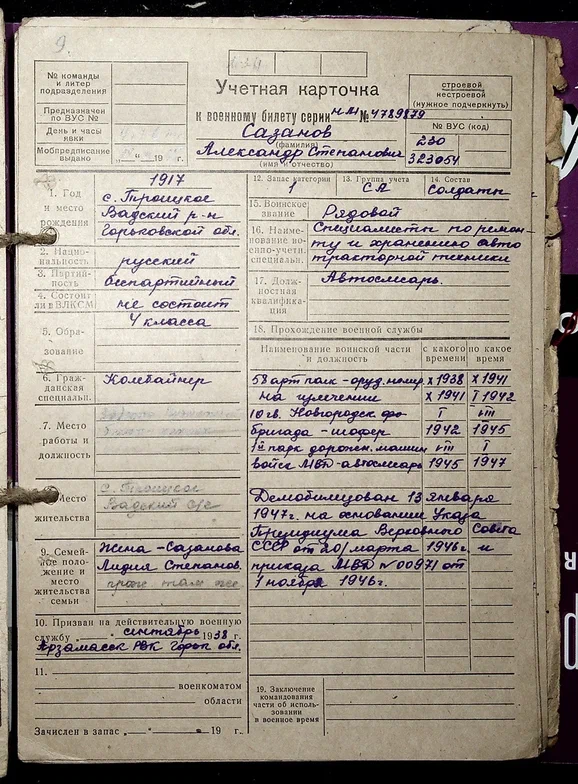 9.
№ команды и литер подразделения
Предназначен по ВУС №
День и часы явки
Мобпредписание выдано „ “ 19 г.
Учетная карточка
к военному билету серии НМ № 4789879
Сазанов
(фамилия)
Александр Степанович
(имя и отчество)
строевой
нестроевой
(нужное подчеркнуть)
№ ВУС (код)
250
323054
1. Год и место рождения
1917
с. Троицкое
Вадский р-н
Горьковской обл.
2. Национальность
русский
3. Партийность
беспартийный
4. Состоит ли в ВЛКСМ
не состоит
5. Образование
4 класса
6. Гражданская специальн.
Комбайнер
7. Место работы и должность
Место жительства
с. Троицкое
Вадский с/с
9. Семейное положение и место жительства семьи
Жена - Сазанова
Лидия Степанов.
прож там же
10. Призван на действительную военную
службу „ “ сентябрь 1938 г.
Арзамасск РВК Горьк обл.
11.
военкоматом
области
Зачислен в запас „ “ 19 г.
12. Запас категории
1
13. Группа учета
СА
14. Состав
Солдаты
15. Воинское звание
Рядовой
16. Наименование военно-учетн. специальн.
Специалисты по ремон-
ту и хранению авто
тракторной техники
17. Должностная квалификация
Автослесарь.
18. Прохождение военной службы
Наименование воинской части и должность
с какого времени
по какое время
58 арт парк - оруд. номер X 1938 X 1941
на излечении X 1941 I 1942
10 гв. Новгородск
бригада - шофер I 1942 VIII 1945
1й парк дорожн. машин
войск МВД - автослесарь VIII 1945 I 1947
Демобилизован 13 января
1947 г. на основании Указа
Президиума Верховного Совета
СССР от 20/марта 1946 г. и
приказа МВД № 00971 от
1 ноября 1946 г.
19. Заключение командования части об использовании в военное время